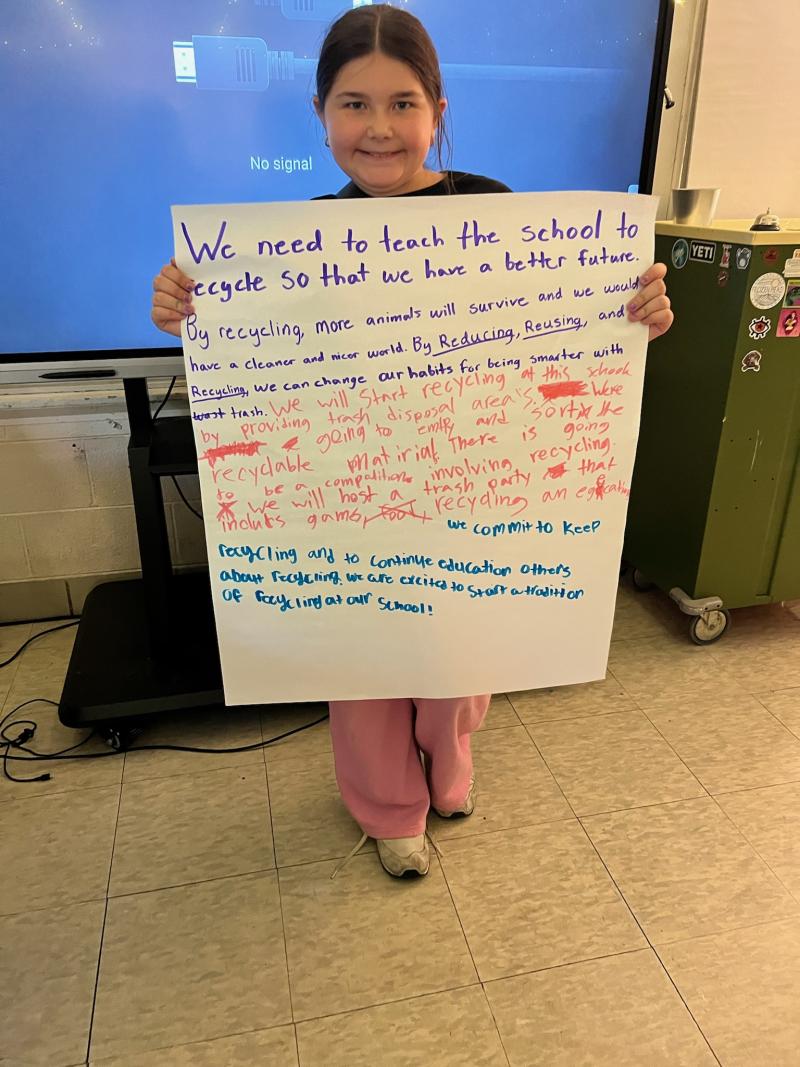 No signal
We need to teach the school to
recycle so that we have a better future.
By recycling, more animals will survive and we would
have a cleaner and nicer world. By Reducing, Reusing, and
Recycling, we can change our habits for being smarter with
trash. We will start recycling at this school
by providing trash disposal area's. Were
going to empty and sort the
recyclable matirial. There is going
to be a compatition involving recycling.
We will host a trash party that
includs games, recycling an
we commit to keep
recycling and to continue education others
about recycling. we are excited to start a tradition
of recycling at our school!
YETI